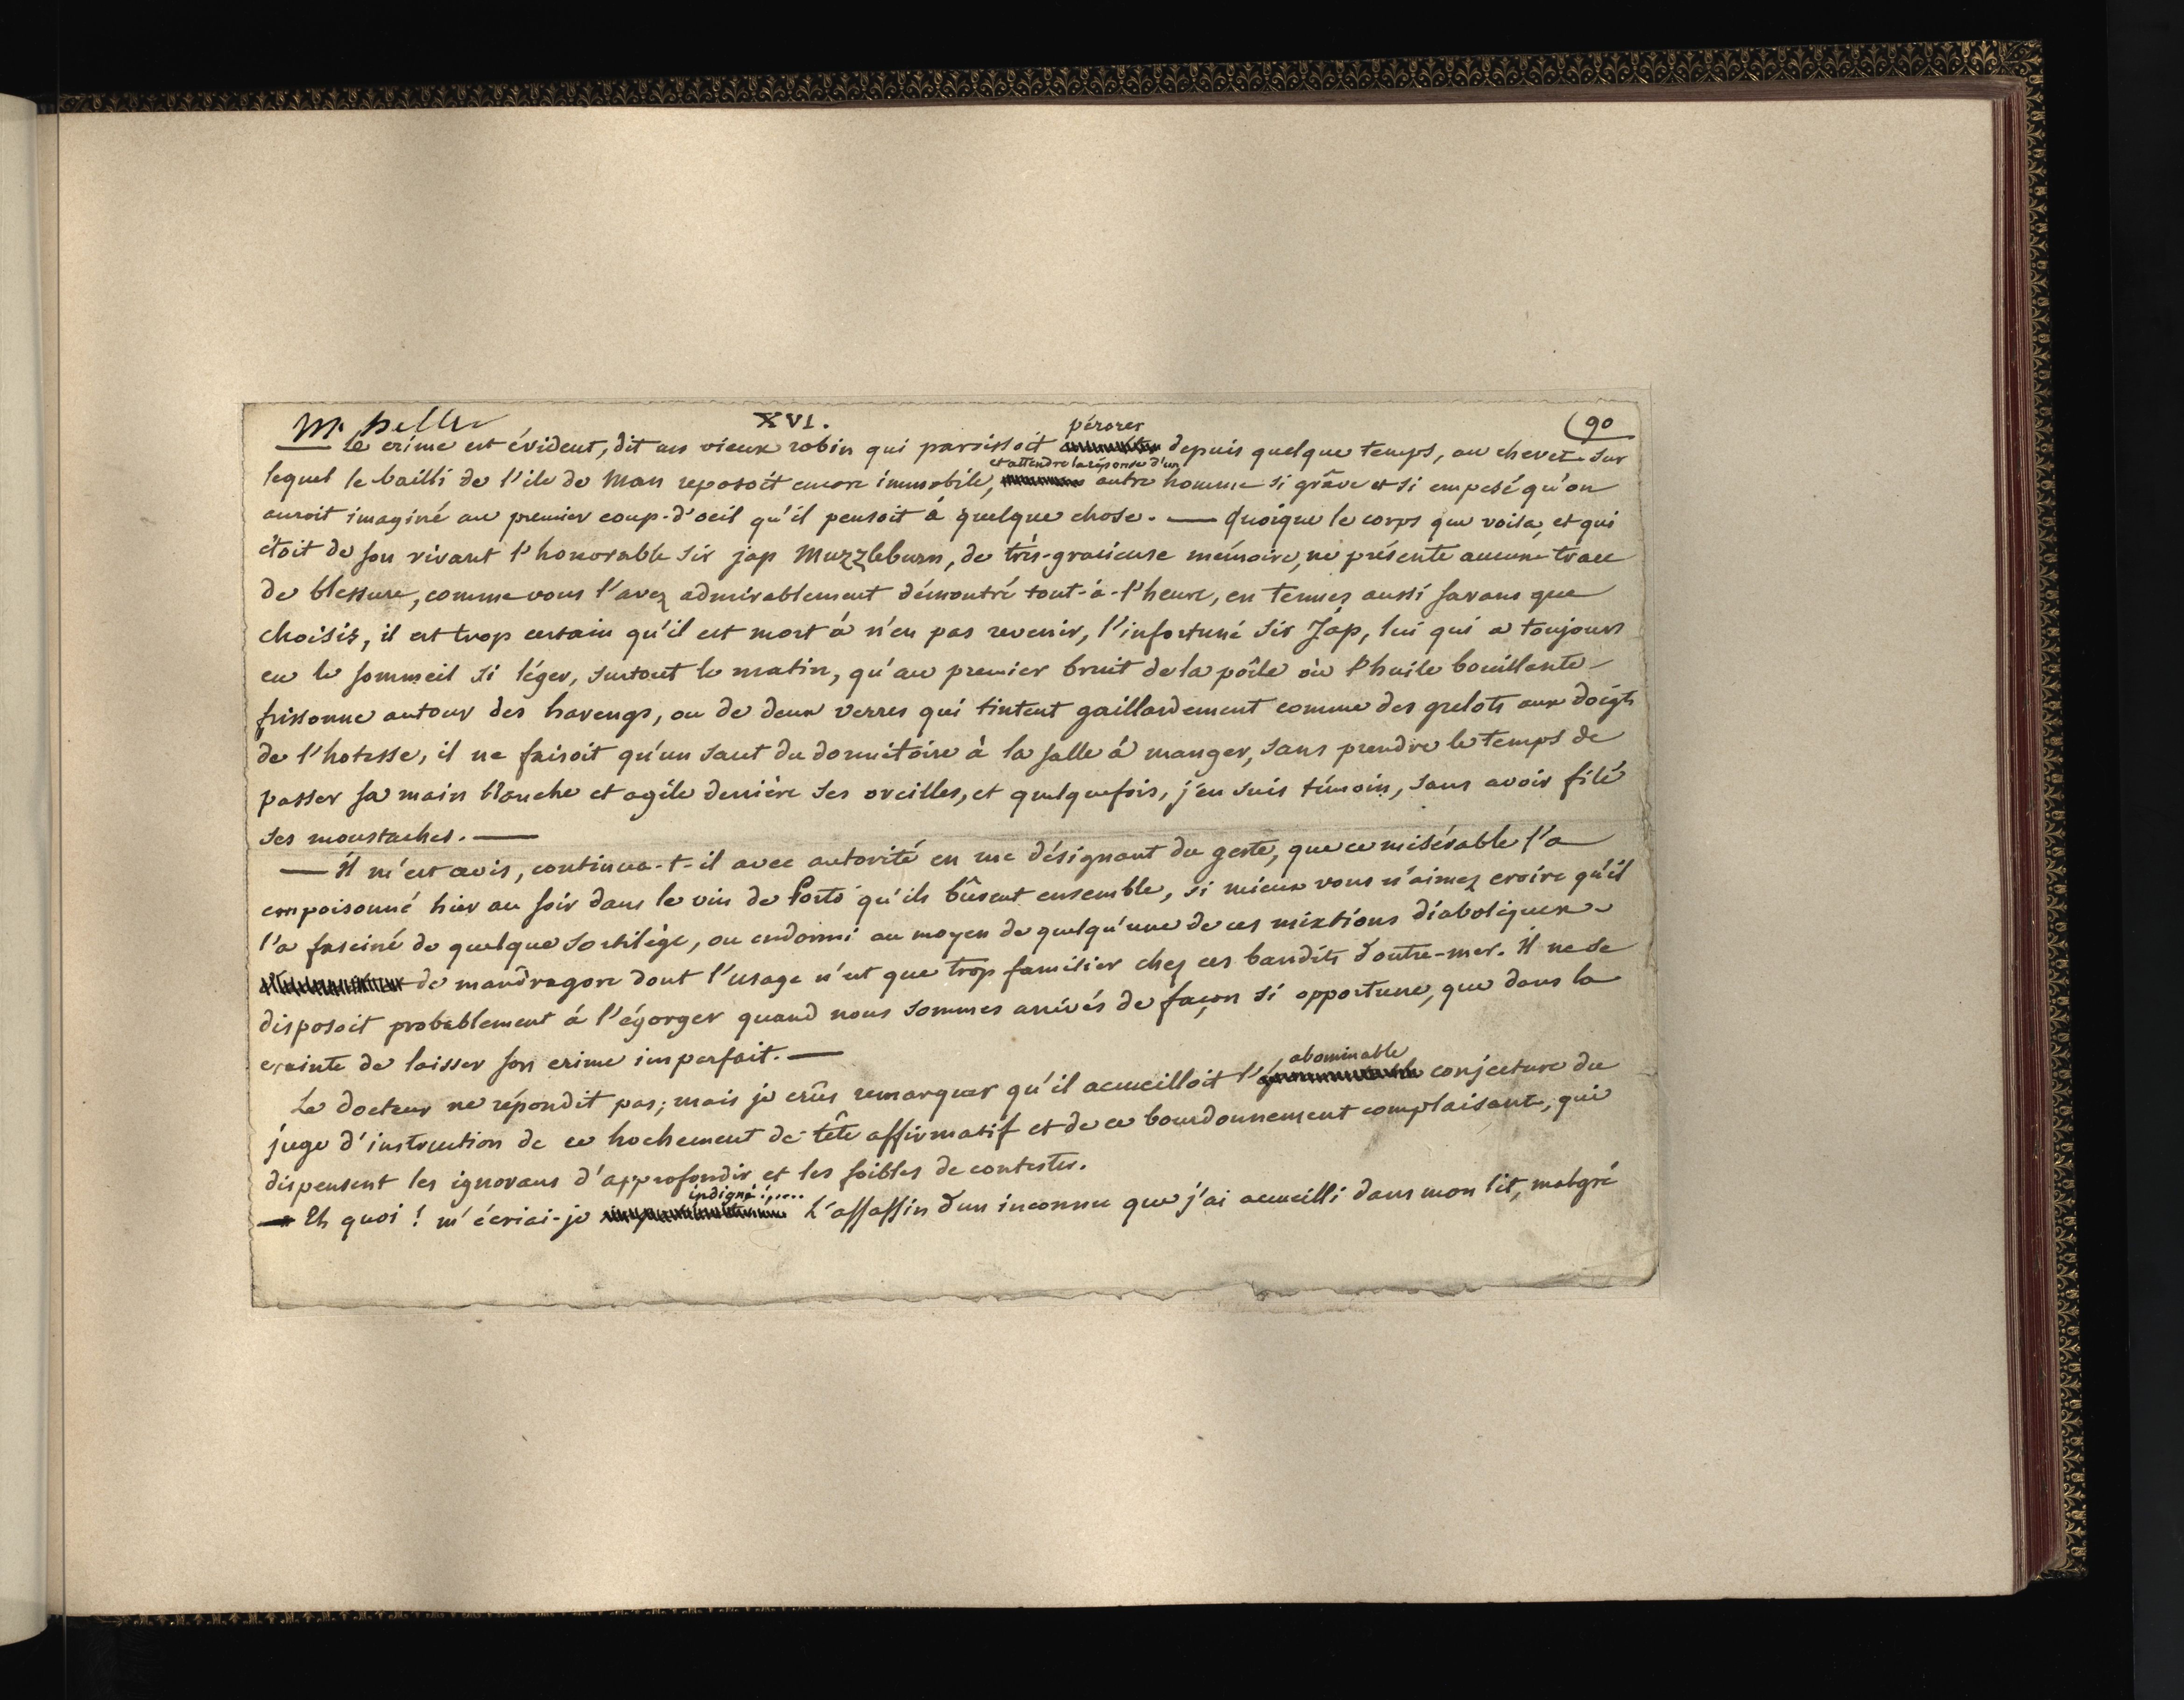 XVI.
(90
pérorer
— Le crime est évident, dit un vieux robin qui paroissoit depuis quelque temps, au chevet sur
et attendre la réponse d'un
lequel le bailli de l'ile de Man reposoit encore immobile, autre homme si grâve et si empesé qu'on
auroit imaginé au premier coup-d'oeil qu'il pensoit à quelque chose. — Quoique le corps que voilà, et qui
étoit de son vivant l'honorable Sir jap Muzzleburn, de très-gracieuse mémoire, ne présente aucune trace
de blessure, comme vous l'avez admirablement démontré tout-à-l'heure, en termes aussi savans que
choisis, il est trop certain qu'il est mort à n'en pas revenir, l'infortuné Sir Jap, lui qui a toujours
eu le sommeil si léger, surtout le matin, qu'au premier bruit de la poîle où l'huile bouillante
frissonne autour des harengs, ou de deux verres qui tintent gaillardement comme des grelots aux doigts
de l'hotesse, il ne faisoit qu'un saut du dormitoire à la salle à manger, sans prendre le temps de
passer sa main blanche et agile derrière ses oreilles, et quelquefois, j'en suis témoin, sans avoir filé
ses moustaches. —
— Il m'est avis, continua-t-il avec autorité en me désignant du geste, que ce misérable l'a
empoisonné hier au soir dans le vin de Porto qu'ils bûrent ensemble, si mieux vous n'aimez croire qu'il
l'a fasciné de quelque sortilège, ou endormi au moyen de quelqu'une de ces mixtions diaboliques
de mandragore dont l'usage n'est que trop familier chez ces bandits d'outre-mer. Il ne se
disposoit probablement à l'égorger quand nous sommes arrivés de façon si opportune, que dans la
crainte de laisser son crime imparfait. —
abominable
Le docteur ne répondit pas; mais je crûs remarquer qu'il accueilloit l' conjecture du
juge d'instruction de ce hochement de tête affirmatif et de ce bourdonnement complaisant, qui
dispensent les ignorans d'approfondir et les foibles de contester.
indigné!.....
— Eh quoi! m'écriai-je L'assassin d'un inconnu que j'ai accueilli dans mon lit, malgré